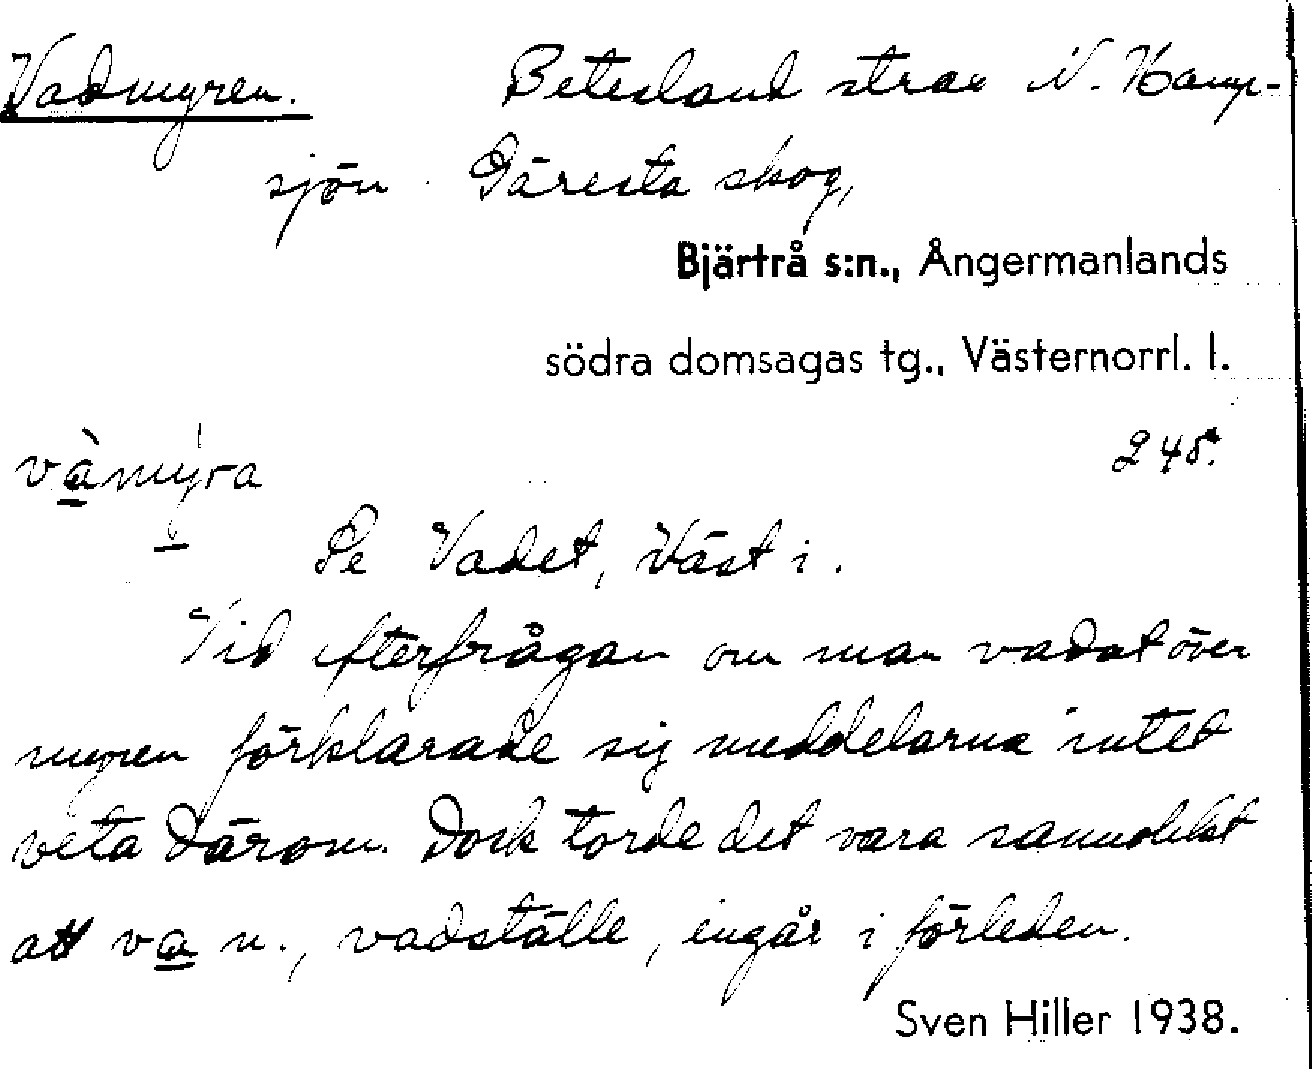 Vadmyren. Betesland strax N. Kamp-
sjön. Däresta skog,
Bjärtrå s:n., Ångermanlands
södra domsagas tg., Västernorrl. l.
vàmýra
Se Vadet, Väst i.
Vid efterfrågan om man vadat över
myren förklarade sig meddelarna intet
veta därom. Dock torde det vara sannolikt
att va n., vadställe, ingår i förleden.
Sven Hiller 1938.